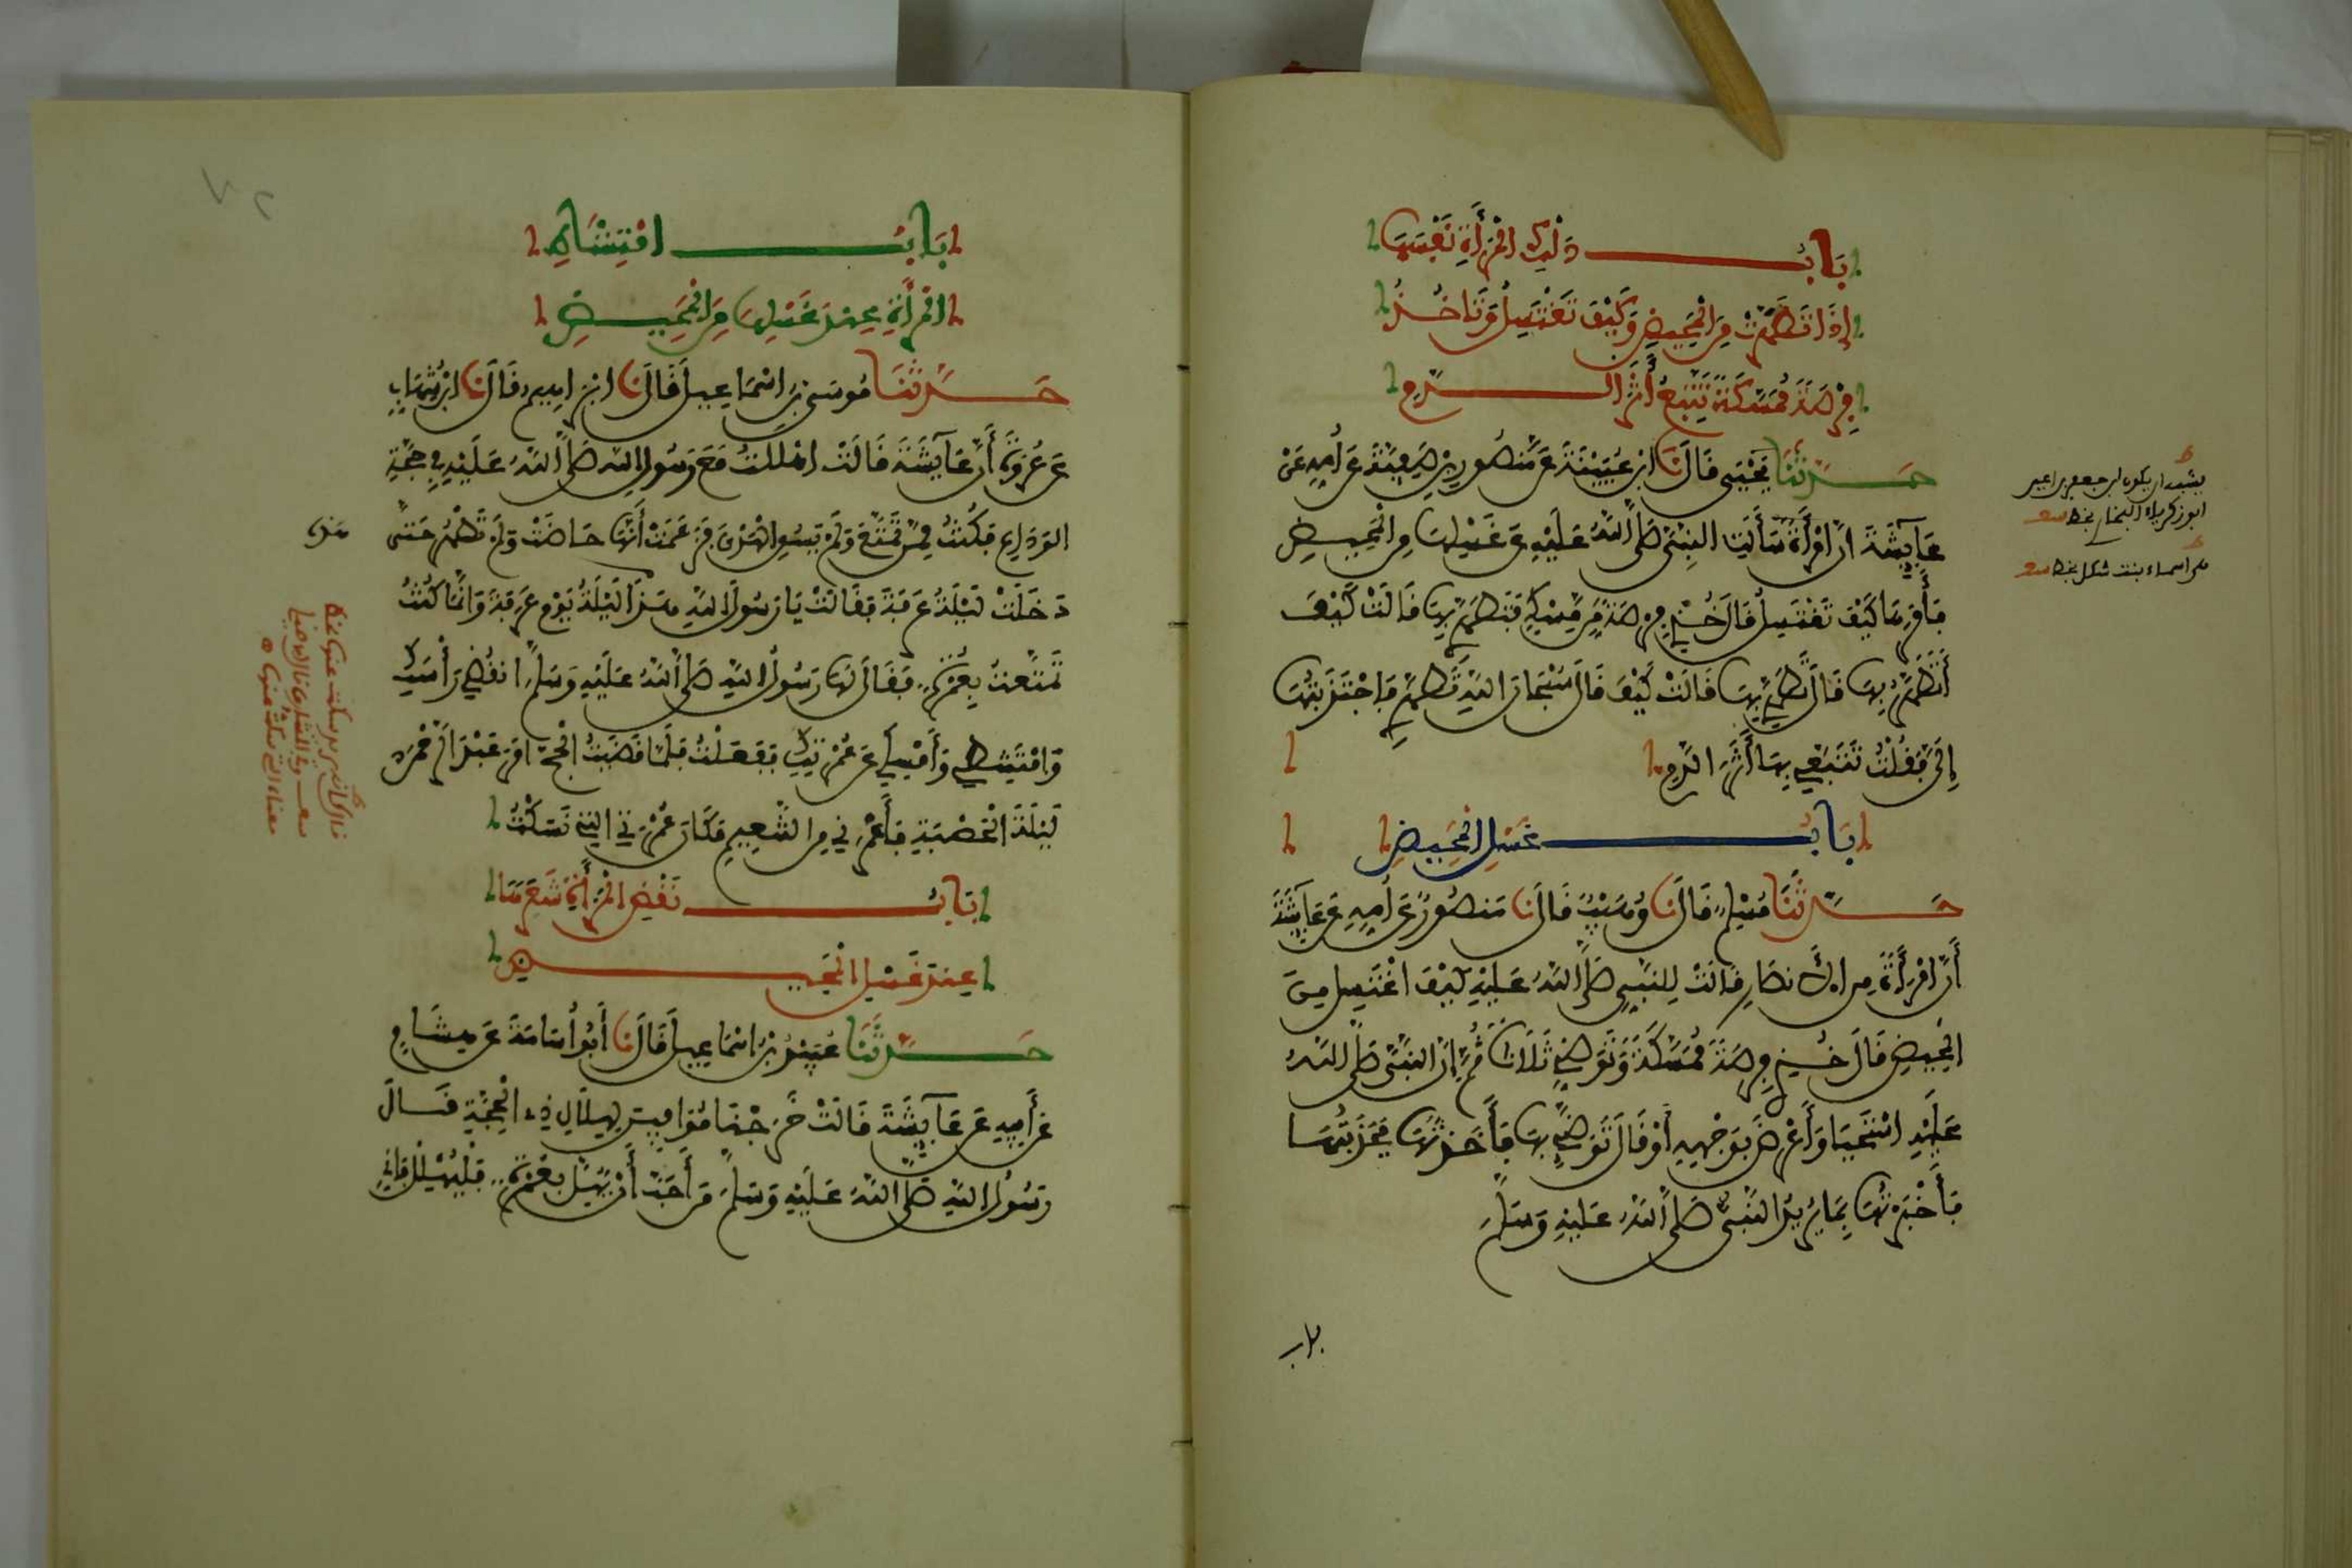 بَابُ دَلْكِ الْمَرْأَةِ نَفْسَهَا
إِذَا تَطَهَّرَتْ مِنَ الْمَحِيضِ وَكَيْفَ تَغْتَسِلُ وَتَأْخُذُ
فِرْصَةً مُمَسَّكَةً تَتَّبِعُ أَثَرَ الدَّمِ
حَدَّثَنَا يَحْيَى قَالَ نَا ابْنُ عُيَيْنَةَ عَنْ مَنْصُورِ بْنِ صَفِيَّةَ عَنْ أُمِّهِ عَنْ
عَايِشَةَ أَنَّ امْرَأَةً سَأَلَتِ النَّبِيَّ صَلَّى اللَّهُ عَلَيْهِ عَنْ غَسْلِهَا مِنَ الْمَحِيضِ
فَأَمَرَهَا كَيْفَ تَغْتَسِلُ قَالَ خُذِي فِرْصَةً مِنْ مِسْكٍ فَتَطَهَّرِي بِهَا قَالَتْ كَيْفَ
أَتَطَهَّرُ بِهَا قَالَ تَطَهَّرِي بِهَا قَالَتْ كَيْفَ قَالَ سُبْحَانَ اللَّهِ تَطَهَّرِي فَاجْتَذَبْتُهَا
إِلَيَّ فَقُلْتُ تَتَبَّعِي بِهَا أَثَرَ الدَّمِ
بَابُ غَسْلِ الْمَحِيضِ
حَدَّثَنَا مُسْلِمٌ قَالَ نَا وُهَيْبٌ قَالَ نَا مَنْصُورٌ عَنْ أُمِّهِ عَنْ عَايِشَةَ
أَنَّ امْرَأَةً مِنَ الأَنْصَارِ قَالَتْ لِلنَّبِيِّ صَلَّى اللَّهُ عَلَيْهِ كَيْفَ اغْتَسِلُ مِنَ
الْمَحِيضِ قَالَ خُذِي فِرْصَةً مُمَسَّكَةً وَتَوَضَّئِي ثَلَاثًا ثُمَّ إِنَّ النَّبِيَّ صَلَّى اللَّهُ
عَلَيْهِ اسْتَحْيَا وَأَعْرَضَ بِوَجْهِهِ أَوْ قَالَ تَوَضَّئِي بِهَا فَأَخَذْتُهَا فَجَذَبْتُهَا
فَأَخْبَرْتُهَا بِمَا يُرِيدُ النَّبِيُّ صَلَّى اللَّهُ عَلَيْهِ وَسَلَّمَ
باب
بَابُ امْتِشَاطِ
الْمَرْأَةِ عِنْدَ غَسْلِهَا مِنَ الْمَحِيضِ
حَدَّثَنَا مُوسَى بْنُ اسْمَاعِيلَ قَالَ نَا ابْرَاهِيمُ قَالَ نَا ابْنُ شِهَابٍ
عَنْ عُرْوَةَ أَنَّ عَايِشَةَ قَالَتْ اهْلَلْتُ مَعَ رَسُولِ اللَّهِ صَلَّى اللَّهُ عَلَيْهِ فِي حَجَّةِ
الْوَدَاعِ فَكُنْتُ مِمَّنْ تَمَتَّعَ وَلَمْ يَسُقِ الْهَدْيَ فَزَعَمَتْ أَنَّهَا حَاضَتْ وَلَمْ تَطْهُرْ حَتَّى
دَخَلَتْ لَيْلَةُ عَرَفَةَ فَقَالَتْ يَا رَسُولَ اللَّهِ هَذَا لَيْلَةُ يَوْمِ عَرَفَةَ وَانَّمَا كُنْتُ
تَمَتَّعْتُ بِعُمْرَةٍ فَقَالَ لَهَا رَسُولُ اللَّهِ صَلَّى اللَّهُ عَلَيْهِ وَسَلَّمَ انْقُضِي رَأْسَكِ
وَامْتَشِطِي وَأَمْسِكِي عَنْ عُمْرَتِكِ فَفَعَلْتُ فَلَمَّا قَضَيْتُ الْحَجَّ امَرَ عَبْدَ الرَّحْمَنِ
لَيْلَةَ الْحَصْبَةِ فَأَعْمَرَنِي مِنَ التَّنْعِيمِ مَكَانَ عُمْرَتِي الَّتِي نَسَكْتُ
بَابُ نَقْضِ الْمَرْأَةِ شَعَرَهَا
عِنْدَ غَسْلِ الْمَحِيضِ
حَدَّثَنَا عُبَيْدُ بْنُ اسْمَاعِيلَ قَالَ نَا أَبُو أُسَامَةَ عَنْ هِشَامٍ
عَنْ أَبِيهِ عَنْ عَايِشَةَ قَالَتْ خَرَجْنَا مُوَافِينَ لِهِلَالِ ذِي الْحِجَّةِ فَقَالَ
رَسُولُ اللَّهِ صَلَّى اللَّهُ عَلَيْهِ وَسَلَّمَ مَنْ أَحَبَّ أَنْ يُهِلَّ بِعُمْرَةٍ فَلْيُهْلِلْ فَإِنِّي